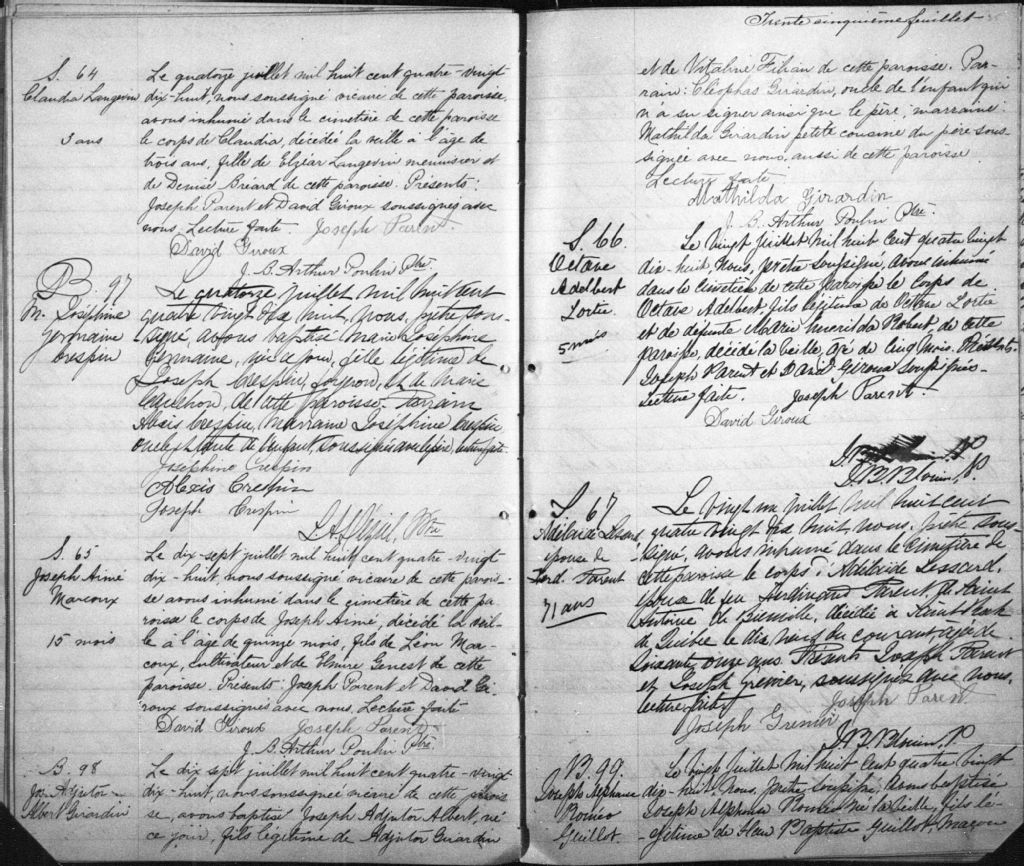 S. 64
Claudia Langevin
3 ans
Le quatorze juillet mil huit cent quatre-vingt
dix-huit, nous soussigné vicaire de cette paroisse,
avons inhumé dans le cimetière de cette paroisse
le corps de Claudia, décédée la veille à l'âge de
trois ans, fille de Elzéar Langevin menuisier et
de Denise Bréard de cette paroisse. Présents:
Joseph Parent et David Giroux soussignés avec
nous. Lecture faite. Joseph Parent
David Giroux
J. B. Arthur Poulin Ptre.
B. 97
M. Joséphine
Germaine
Crespin
Le quatorze juillet mil huit cent
quatre vingt dix huit, nous, prêtre sous-
signé, avons baptisé Marie Joséphine
Germaine, née ce jour, fille légitime de
Joseph Crespin, forgeron, et de Marie
de cette paroisse. Parrain
Alexis Crespin, Marraine Joséphine Crespin
oncle et tante de l'enfant, soussignés avec le père, lecture faite.
Joséphine Crespin
Alexis Crespin
Joseph Crespin
Ptre
S. 65
Joseph Aimé
Marcoux
15 mois
Le dix-sept juillet mil huit cent quatre-vingt
dix-huit, nous soussigné vicaire de cette parois-
se avons inhumé dans le cimetière de cette pa-
roisse le corps de Joseph Aimé, décédé la veil-
le à l'âge de quinze mois, fils de Léon Mar-
coux, cultivateur et de Elmire Genest de cette
paroisse. Présents: Joseph Parent et David Gi-
roux soussignés avec nous. Lecture faite
David Giroux Joseph Parent
J. B. Arthur Poulin Ptre.
B. 98
Jos. Adjutor
Albert Girardin
Le dix sept juillet mil huit cent quatre-vingt
dix-huit, nous soussigné vicaire de cette parois
se, avons baptisé Joseph Adjutor Albert, né
ce jour, fils légitime de Adjutor Girardin
Trente cinquième feuillet
et de Vitaline Filion de cette paroisse. Par-
rain: Cléophas Girardin, oncle de l'enfant qui
n'a su signer ainsi que le père, marraine:
Mathilda Girardin petite cousine du père sous-
signée avec nous, aussi de cette paroisse
Lecture faite
Mathilda Girardin
J. B. Arthur Poulin Ptre.
S. 66.
Octave
Adelbert
Lortie.
5 mois
Le vingt juillet mil huit cent quatre vingt
dix-huit, nous, prêtre soussigné, avons inhumé
dans le cimetière de cette paroisse le corps de
Octave Adelbert, fils légitime de Octave Lortie
et de défunte Marie Robert, de cette
paroisse, décédé la veille, âgé de cinq mois. Présents.
Joseph Parent et David Giroux soussignés.
Lecture faite. Joseph Parent.
David Giroux
J. B. Blouin, P.
S. 67
Adélaïde Lessard
épouse de
Ferd. Parent
71 ans
Le vingt un juillet mil huit cent
quatre vingt dix huit, nous, prêtre sous-
signé, avons inhumé dans le cimetière de
cette paroisse le corps d'Adélaïde Lessard,
épouse de feu Ferdinand Parent, de Saint
Antoine de Bienville, décédée à Saint
de Québec le dix neuf du courant, âgée de
soixante, onze ans. Présents Joseph Parent
et Joseph Grenier, soussignés avec nous,
lecture faite. Joseph Parent
Joseph Grenier
J. B. Blouin, P
B. 99.
Joseph Alphonse
Roméo
Guillot.
Le vingt juillet mil huit cent quatre vingt
dix-huit. Nous, prêtre soussigné, avons baptisé
Joseph Alphonse Roméo né la veille, fils lé-
gitime de Baptiste Guillot, maçon